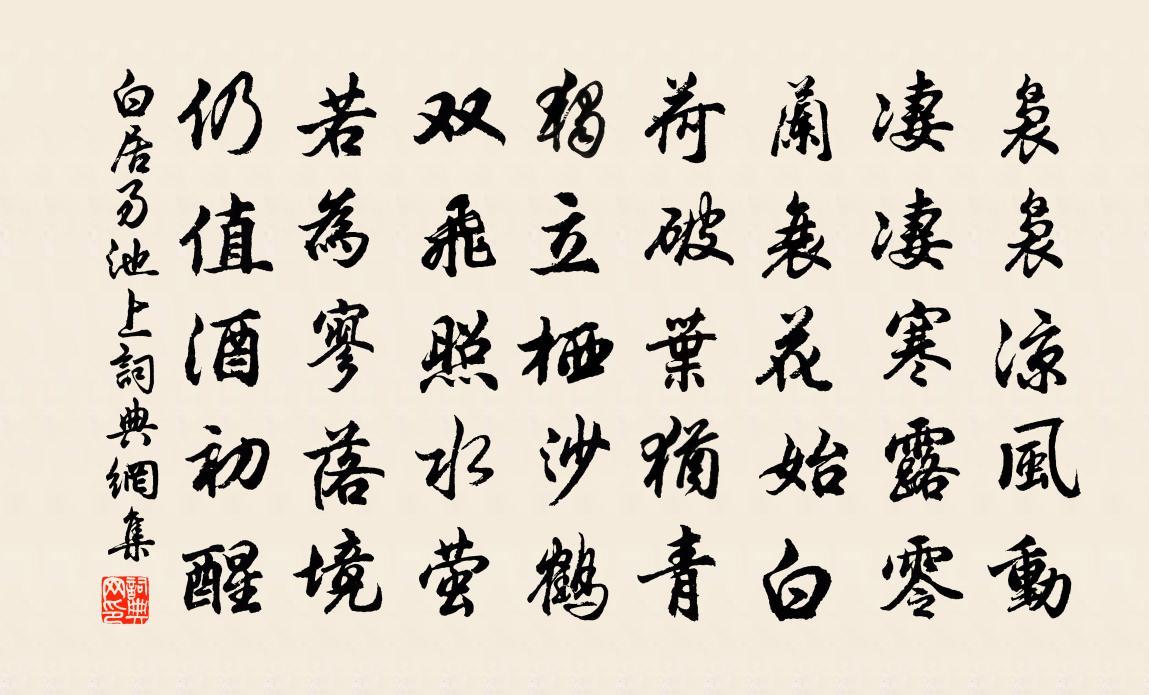 裊裊涼風動
淒淒寒露零
蘭衰花始白
荷破葉猶青
獨立栖沙鶴
双飛照水螢
若為寥落境
仍值酒初醒
白居易池上詞典網集
詞典網印